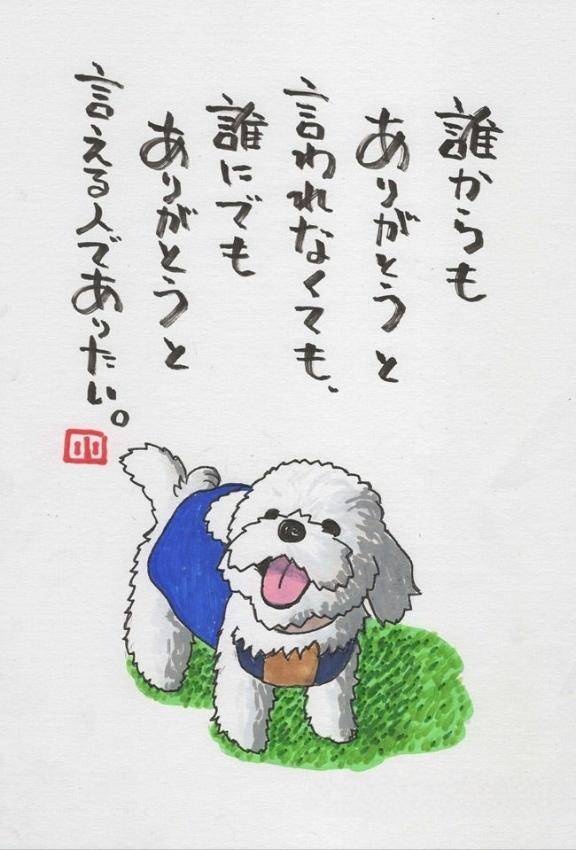 誰からも
ありがとうと
言われなくても、
誰にでも
ありがとうと
言える人でありたい。